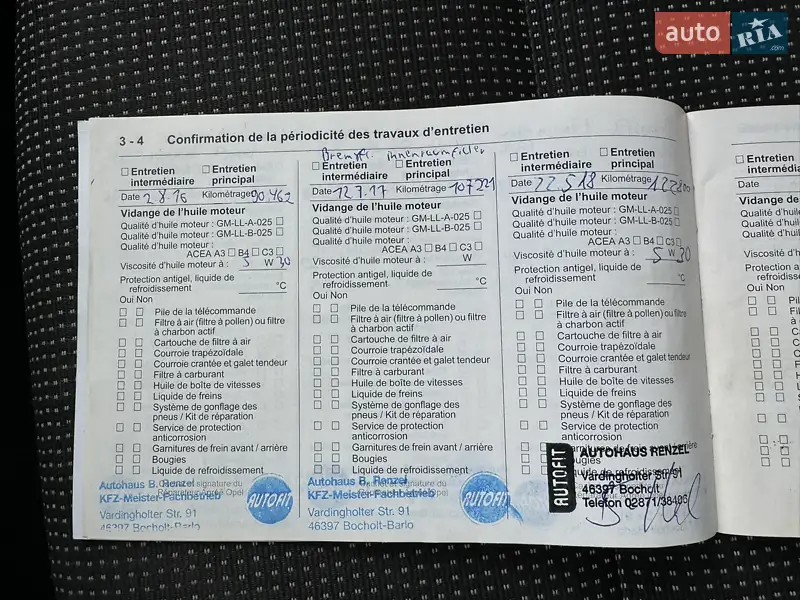 auto RIA .com
3 - 4 Confirmation de la périodicité des travaux d'entretien
Entretien intermédiaire Entretien principal
Date 2.8.16 Kilométrage 90.462
Vidange de l'huile moteur
Qualité d'huile moteur : GM-LL-A-025
Qualité d'huile moteur : GM-LL-B-025
Qualité d'huile moteur :
ACEA A3 B4 C3
Viscosité d'huile moteur à : 5 W 30
Protection antigel, liquide de
refroidissement °C
Oui Non
Pile de la télécommande
Filtre à air (filtre à pollen) ou filtre
à charbon actif
Cartouche de filtre à air
Courroie trapézoïdale
Courroie crantée et galet tendeur
Filtre à carburant
Huile de boîte de vitesses
Liquide de freins
Système de gonflage des
pneus / Kit de réparation
Service de protection
anticorrosion
Garnitures de frein avant / arrière
Bougies
Liquide de refroidissement
Autohaus B. Renzel
KFZ-Meister-Fachbetrieb
AUTOFIT
Vardingholter Str. 91
46397 Bocholt-Barlo
innenraumfilter
Entretien intermédiaire Entretien principal
Date 12.7.17 Kilométrage 107221
Vidange de l'huile moteur
Qualité d'huile moteur : GM-LL-A-025
Qualité d'huile moteur : GM-LL-B-025
Qualité d'huile moteur :
ACEA A3 B4 C3
Viscosité d'huile moteur à : W
Protection antigel, liquide de
refroidissement °C
Oui Non
Pile de la télécommande
Filtre à air (filtre à pollen) ou filtre
à charbon actif
Cartouche de filtre à air
Courroie trapézoïdale
Courroie crantée et galet tendeur
Filtre à carburant
Huile de boîte de vitesses
Liquide de freins
Système de gonflage des
pneus / Kit de réparation
Service de protection
anticorrosion
Garnitures de frein avant / arrière
Bougies
Liquide de refroidissement
Autohaus B. Renzel
KFZ-Meister-Fachbetrieb
AUTOFIT
Vardingholter Str. 91
46397 Bocholt-Barlo
Entretien intermédiaire Entretien principal
Date 22.5.18 Kilométrage
Vidange de l'huile moteur
Qualité d'huile moteur : GM-LL-A-025
Qualité d'huile moteur : GM-LL-B-025
Qualité d'huile moteur :
ACEA A3 B4 C3
Viscosité d'huile moteur à : 5 W 30
Protection antigel, liquide de
refroidissement °C
Oui Non
Pile de la télécommande
Filtre à air (filtre à pollen) ou filtre
à charbon actif
Cartouche de filtre à air
Courroie trapézoïdale
Courroie crantée et galet tendeur
Filtre à carburant
Huile de boîte de vitesses
Liquide de freins
Système de gonflage des
pneus / Kit de réparation
Service de protection
anticorrosion
AUTOFIT
AUTOHAUS RENZEL
Vardingholter Str. 91
46397 Bocholt
Telefon 02871/38406
Date